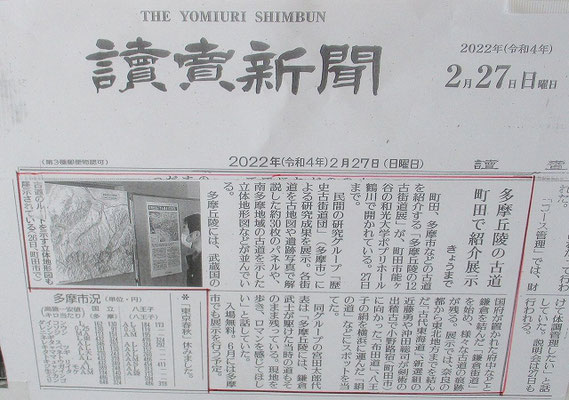 THE YOMIURI SHIMBUN
讀賣新聞
2022年(令和4年)
2月27日日曜日
(第3種郵便物認可)
2022年(令和4年)2月27日(日曜日)
讀賣
多摩丘陵の古道
町田で紹介展示
きょうまで
町田、多摩市などの古道
を紹介する「多摩丘陵の12
古街道展」が、町田市能ヶ
谷の和光大学ポプリホール
鶴川で開かれている。27日
まで。
民間の研究グループ「歴
史古街道団」(多摩市)に
よる研究成果を展示。各街
道を古地図や遺跡写真で解
説した約30枚のパネルや、
南多摩地域の古道を示した
立体地形図などが並んでい
る。
多摩丘陵には、武蔵国の
国府が置かれた府中などと
鎌倉を結んだ「鎌倉街道」
を始め、様々な古道の痕跡
が残る。展示では、奈良の
都から東北地方までを結ん
だ「古代東海道」、新選組の
近藤勇や沖田総司が剣術の
出稽古で小野路宿(町田市)
に向かった「布田道」、八王
子の絹を横浜に運んだ「絹
の道」などにスポットを当
てた。
同グループの宮田太郎代
表は「多摩丘陵には、鎌倉
武士が駆けた当時の道もそ
のまま残っている。現地を
歩き、ロマンを感じてほし
い」と話していた。
入場無料。6月には多摩
市でも展示を行う予定。
古道のルートを示す立体地形図も
展示されている(26日、町田市で)
多摩市況
(単位・円)
国立
八王子
*「東京春秋」休みました
「コース管理」では、財
けて体調管理したい」と話
していた。説明会は27日も
行われる。